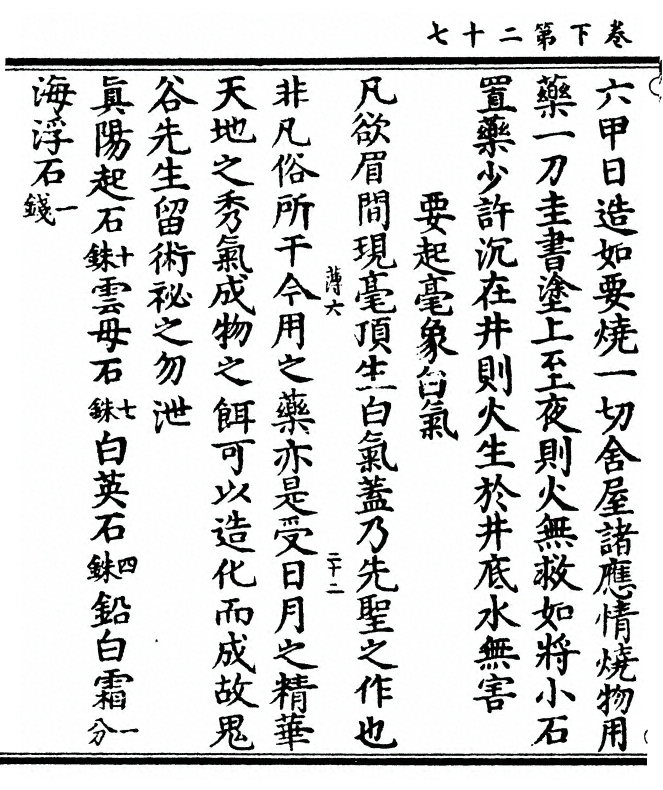 卷下第二十七
六甲日造如要燒一切舍屋諸應情燒物用
藥一刀圭書塗上至夜則火無救如將小石
置藥少許沉在井則火生於井底水無害
要起毫象白氣
凡欲眉間現毫頂生白氣蓋乃先聖之作也
薄六
二十二
非凡俗所干今用之藥亦是受日月之精華
天地之秀氣成物之餌可以造化而成故鬼
谷先生留術祕之勿泄
眞陽起石十銖雲母石七銖白英石四銖鉛白霜一分
海浮石一錢